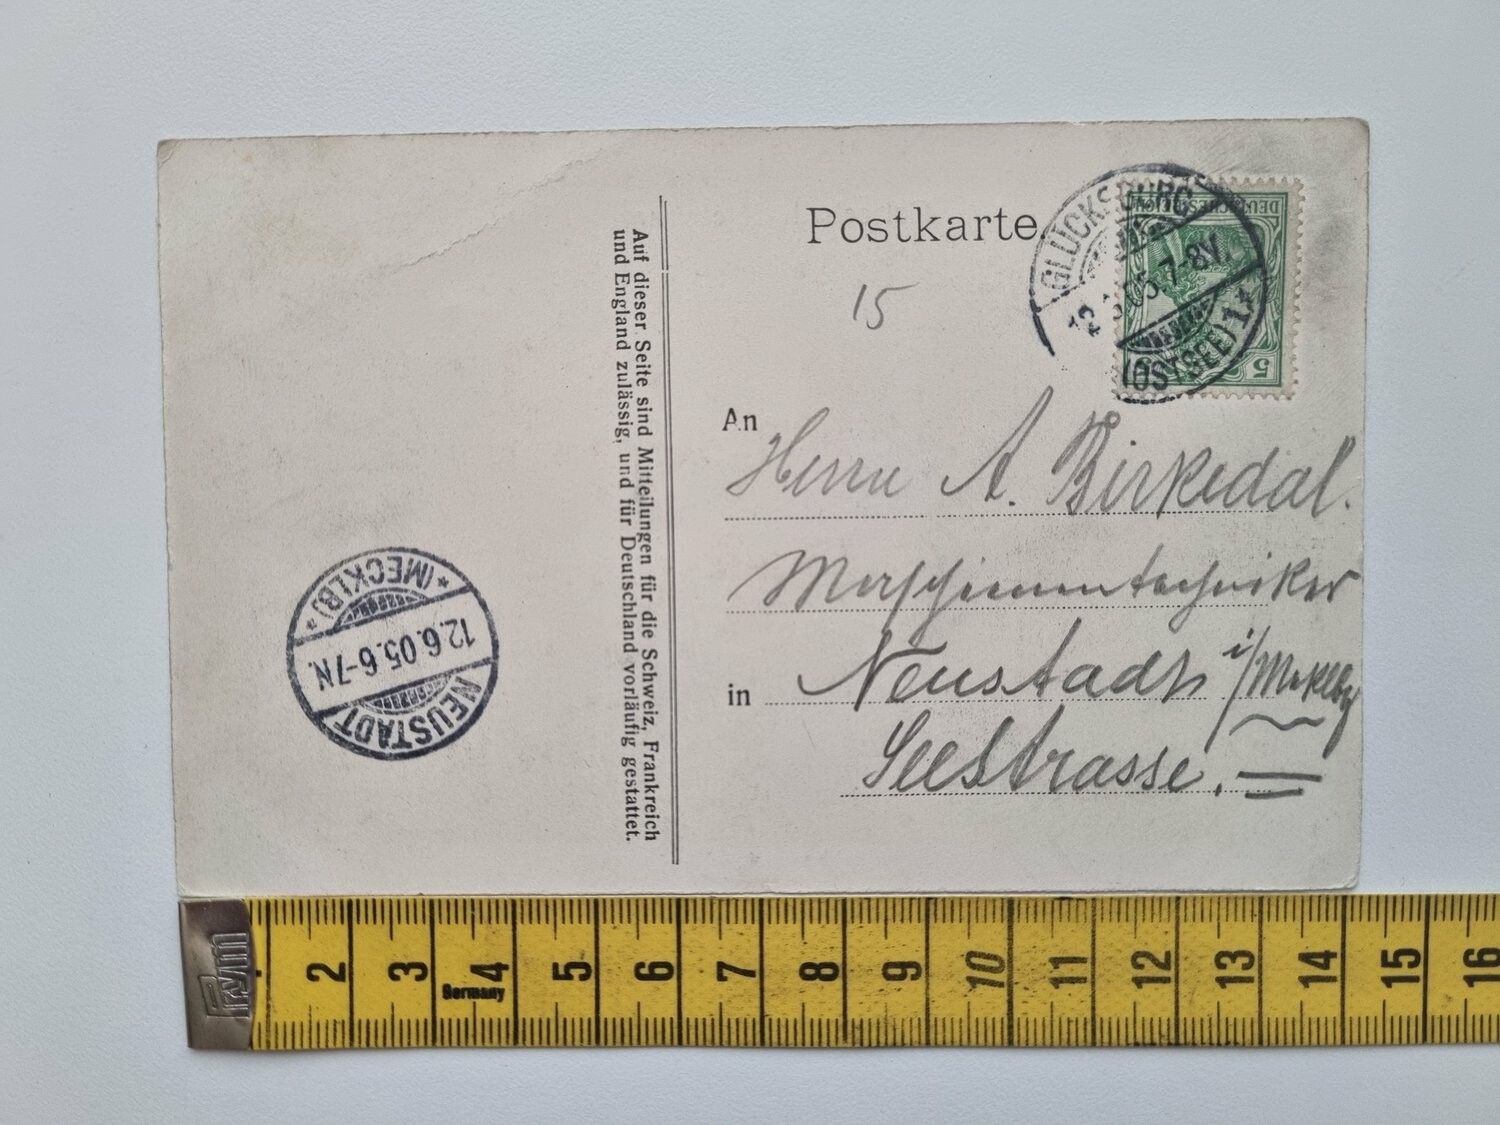 Postkarte.
GLÜCKSBURG
05.7-8V.
(OSTSEE) 1*
DEUTSCHES REICH
5
15
An
Herrn A. Birkedal.
Maschinentechniker
in Neustadt i/Mcklbg
Seestrasse.
Auf dieser Seite sind Mitteilungen für die Schweiz, Frankreich
und England zulässig, und für Deutschland vorläufig gestattet.
NEUSTADT
12.6.05.6-7N.
*(MECKLB)*
2 3 4 5 6 7 8 9 10 11 12 13 14 15 16
Germany